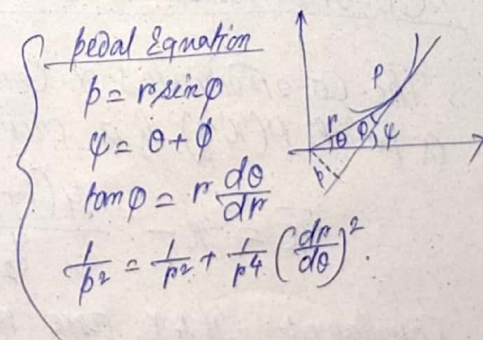 pedal Equation
p = r sinφ
ψ = θ + φ
tanφ = r dθ/dr
1/p² = 1/r² + 1/r⁴ (dr/dθ)².
P
r
θ φ ψ
p